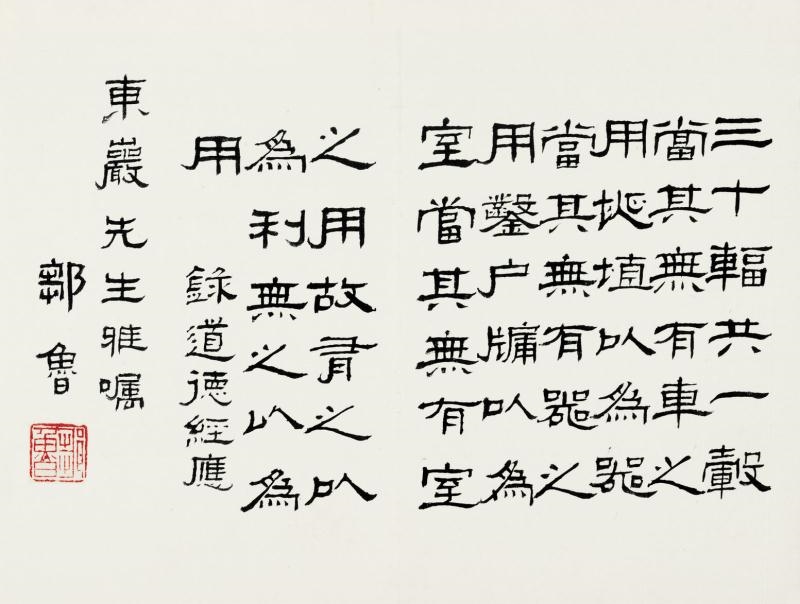 三十輻共一轂
當其無有車之
用埏埴以為器
當其無有器之
用鑿户牖以為
室當其無有室
之用故有之以
為利無之以為
用
錄道德經應
東巖先生雅囑
鄒魯
鄒魯